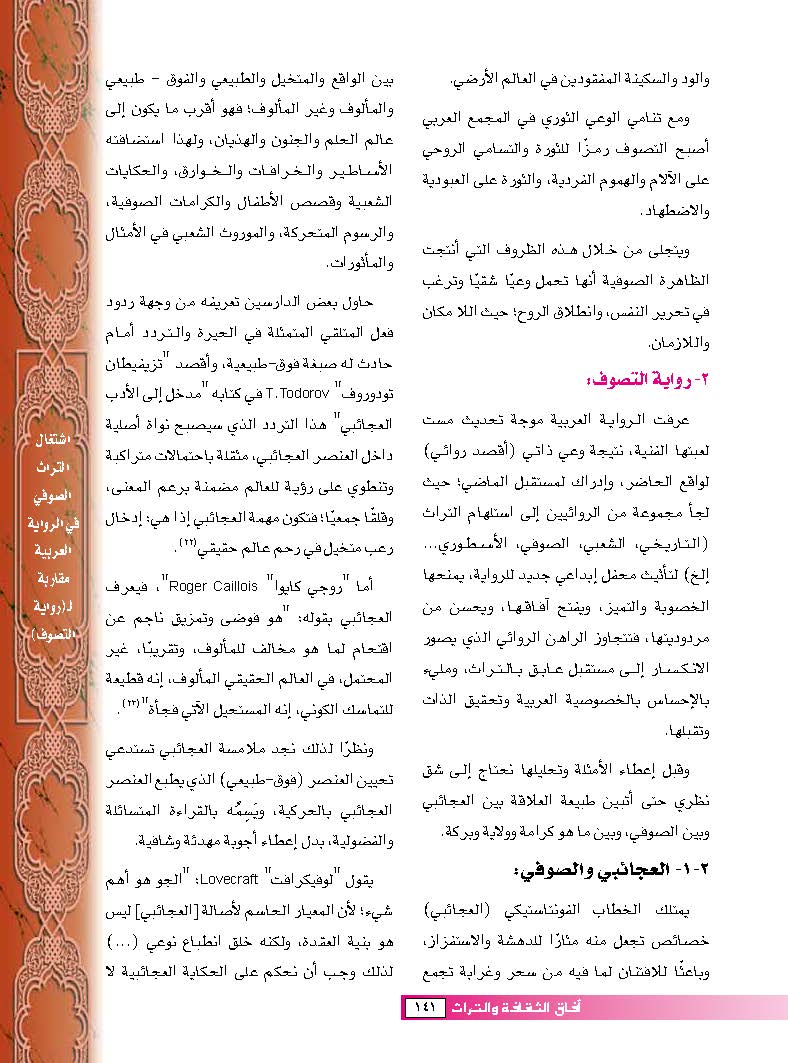 والود والسكينة المفقودين في العالم الأرضي.
ومع تنامي الوعي الثوري في المجمع العربي
أصبح التصوف رمزًا للثورة والتسامي الروحي
على الآلام والهموم الفردية، والثورة على العبودية
والاضطهاد.
ويتجلى من خلال هذه الظروف التي أنتجت
الظاهرة الصوفية أنها تحمل وعيًا شقيًا وترغب
في تحرير النفس، وانطلاق الروح؛ حيث اللا مكان
واللازمان.
٢- رواية التصوف:
عرفت الرواية العربية موجة تحديث مست
لعبتها الفنية، نتيجة وعي ذاتي (أقصد روائي)
لواقع الحاضر، وإدراك لمستقبل الماضي؛ حيث
لجأ مجموعة من الروائيين إلى استلهام التراث
(التاريخي، الشعبي، الصوفي، الأسطوري...
إلخ) لتأثيث محفل إبداعي جديد للرواية، يمنحها
الخصوبة والتميز، ويفتح آفاقها، ويحسن من
مردوديتها، فتتجاوز الراهن الروائي الذي يصور
الانكسار إلى مستقبل عابق بالتراث، ومليء
بالإحساس بالخصوصية العربية وتحقيق الذات
وتقبلها.
وقبل إعطاء الأمثلة وتحليلها نحتاج إلى شق
نظري حتى أتبين طبيعة العلاقة بين العجائبي
وبين الصوفي، وبين ما هو كرامة وولاية وبركة.
٢-١- العجائبي والصوفي:
يمتلك الخطاب الفونتاستيكي (العجائبي)
خصائص تجعل منه مثارًا للدهشة والاستفزاز،
وباعثًا للافتنان لما فيه من سحر وغرابة تجمع
بين الواقع والمتخيل والطبيعي والفوق - طبيعي
والمألوف وغير المألوف؛ فهو أقرب ما يكون إلى
عالم الحلم والجنون والهذيان، ولهذا استضافته
الأساطير والخرافات والخوارق، والحكايات
الشعبية وقصص الأطفال والكرامات الصوفية،
والرسوم المتحركة، والموروث الشعبي في الأمثال
والمأثورات.
حاول بعض الدارسين تعريفه من وجهة ردود
فعل المتلقي المتمثلة في الحيرة والتردد أمام
حادث له صبغة فوق-طبيعية، وأقصد "تزيفيطان
تودوروف" T.Todorov في كتابه "مدخل إلى الأدب
العجائبي" هذا التردد الذي سيصبح نواة أصلية
داخل العنصر العجائبي، مثقلة باحتمالات متراكبة
وتنطوي على رؤية للعالم مضمنة برعم المعنى،
وقلقًا جمعيًا؛ فتكون مهمة العجائبي إذا هي: إدخال
رعب متخيل في رحم عالم حقيقي(٢٢).
أما "روجي كايوا" Roger Caillois"، فيعرف
العجائبي بقوله: "هو فوضى وتمزيق ناجم عن
اقتحام لما هو مخالف للمألوف، وتقريبًا، غير
المحتمل، في العالم الحقيقي المألوف، إنه قطيعة
للتماسك الكوني، إنه المستحيل الآتي فجأة"(٢٣).
ونظرًا لذلك نجد ملامسة العجائبي تستدعي
تحيين العنصر (فوق-طبيعي) الذي يطبع العنصر
العجائبي بالحركية، ويَسِمُه بالقراءة المتسائلة
والفضولية، بدل إعطاء أجوبة مهدئة وشافية.
يقول "لوفيكرافت" Lovecraft: "الجو هو أهم
شيء؛ لأن المعيار الحاسم لأصالة [العجائبي] ليس
هو بنية العقدة، ولكنه خلق انطباع نوعي (...)
لذلك وجب أن نحكم على الحكاية العجائبية لا
اشتغال
التراث
الصوفي
في الرواية
العربية
مقاربة
لـ(رواية
التصوف)
آفاق الثقافة والتراث ١٤١